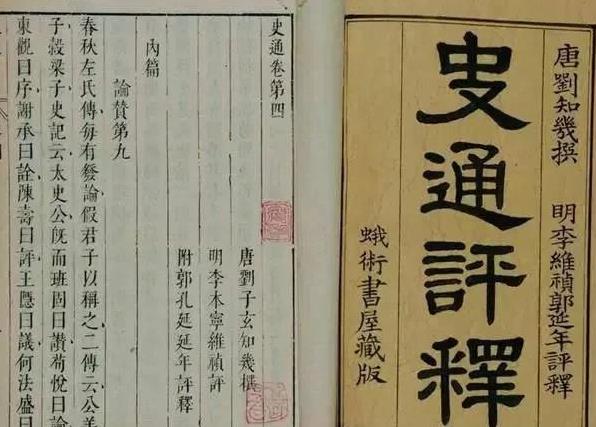 唐劉知幾撰　明李維禎郭延年評釋
史通評釋
蛾術書屋藏版
史通卷第四
唐劉子玄知幾撰
明李本寧維禎評
附郭孔延延年評釋
內篇
論贊第九
春秋左氏傳每有發論假君子以稱之二傳云公羊
子穀梁子史記云太史公既而班固曰讚荀悅曰論
東觀曰序謝承曰詮陳壽曰評王隱曰議何法盛曰